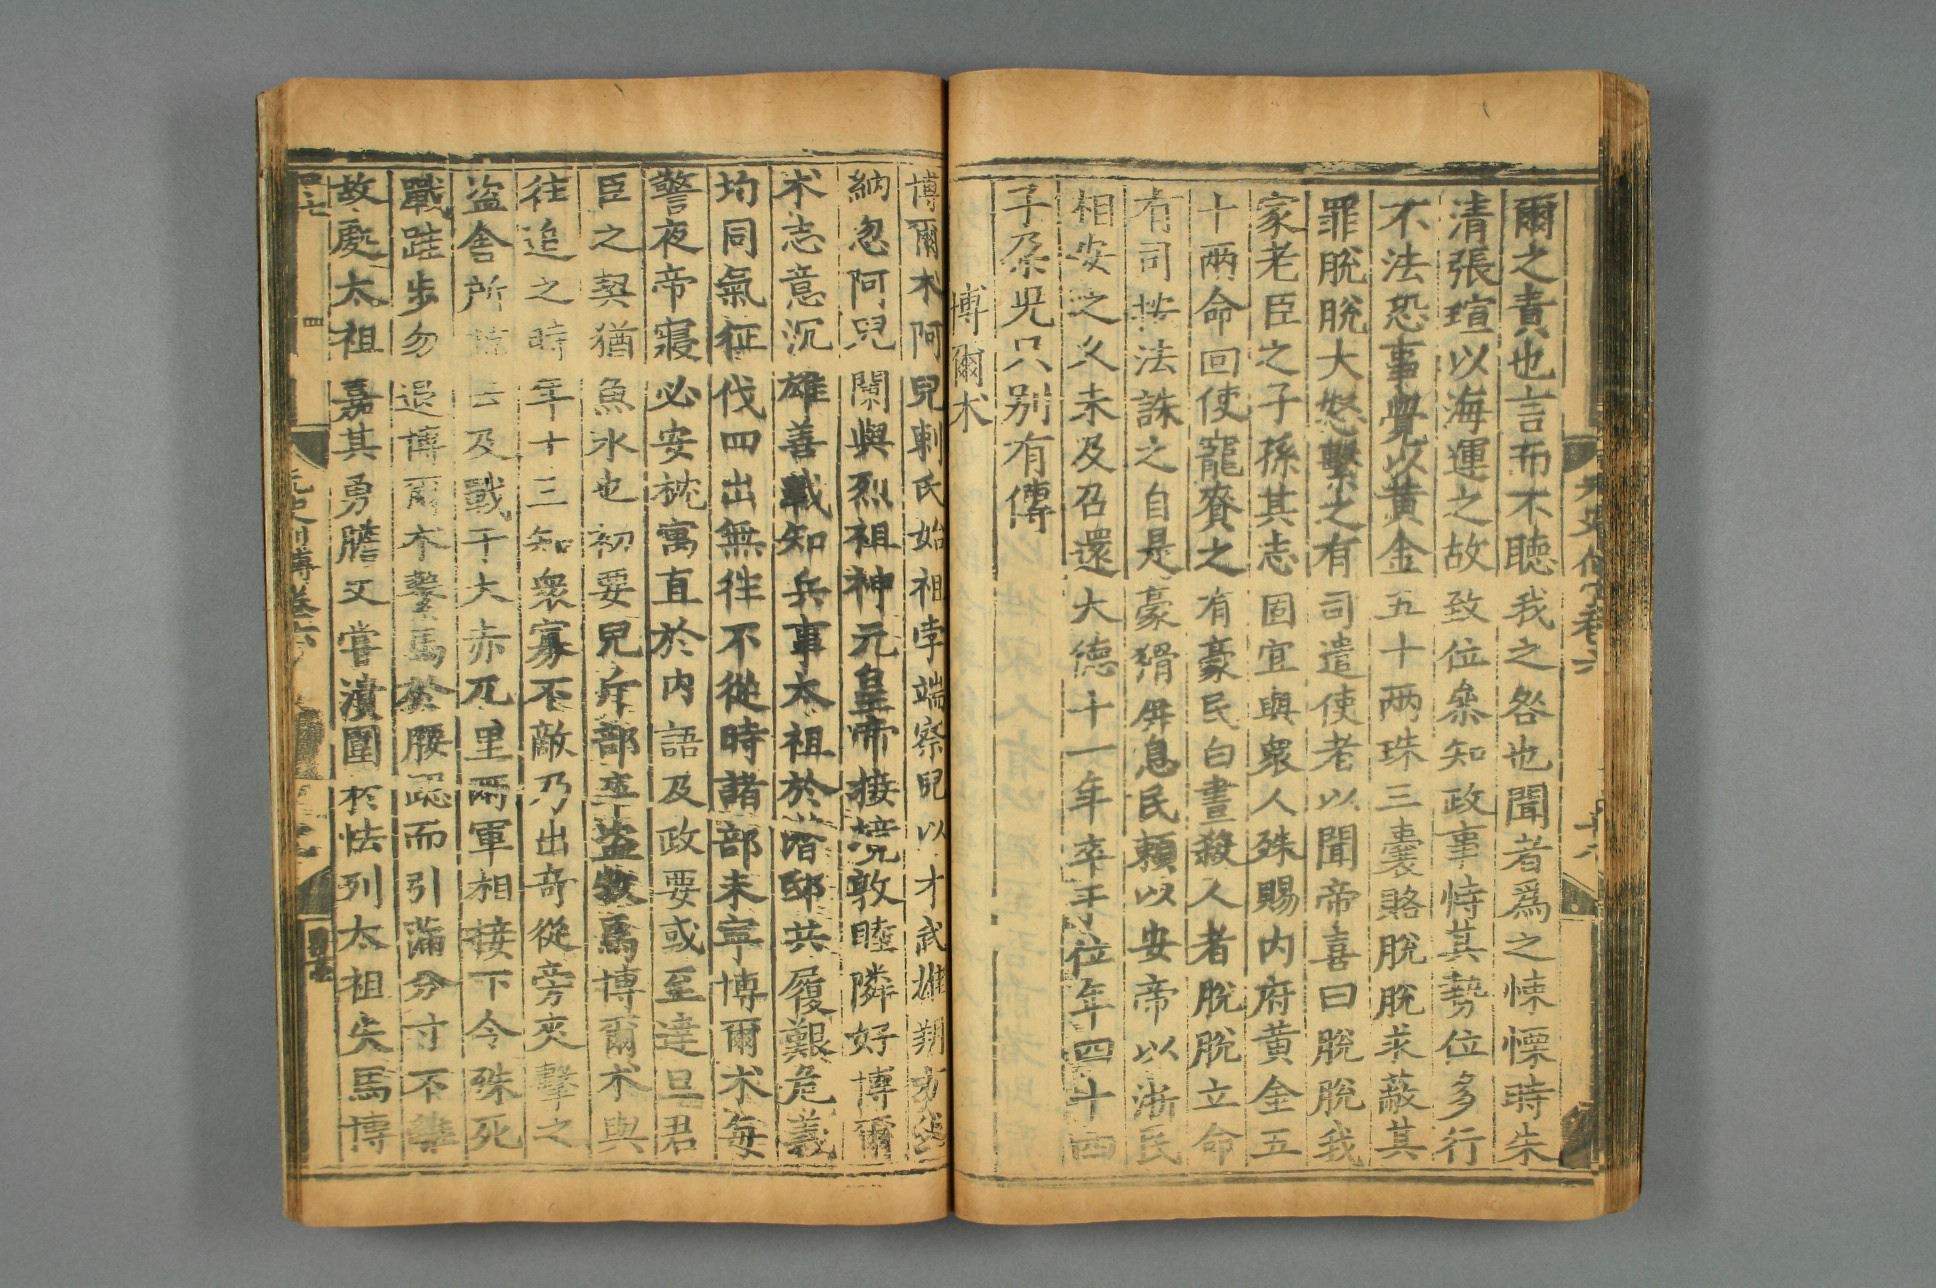 爾之責也言而不聴我之咎也聞者爲之悚慄時朱
清張瑄以海運之故致位叅知政事恃其勢位多行
不法恐事覺以黄金五十两珠三囊賂脫脫求蔽其
罪脫脫大怒繫之有司遣使者以聞帝喜曰脫脫我
家老臣之子孫其志固宜與衆人殊賜内府黄金五
十两命回使寵賚之有豪民白晝殺人者脫脫立命
有司按法誅之自是豪猾屏息民頼以安帝以浙民
相安之久未及召還大德十一年卒于位年四十四
子朶児只别有傳
博爾术
博爾术阿兒剌氏始祖孛端察兒以才武雄朔方
納忽阿兒闌與烈祖神元皇帝接境敦睦隣好博爾
术志意沉雄善戰知兵事太祖於潜邸共履艱危義
均同氣征伐四出無往不從時諸部未寧博爾术每
警夜帝寢必安枕寓直於内語及政要或至達旦君
臣之契猶魚水也初要兒斤部卒盗牧馬博爾术與
往追之時年十三知衆寡不敵乃出竒從旁夾擊之
盗舎所 去及戰于大赤兀里兩軍相接下令殊死
戰跬步勿退博爾术繫馬於腰跽而引滿分寸不離
故處太祖嘉其勇膽又嘗潰圍於怯列太祖失馬博
元史列傳卷六